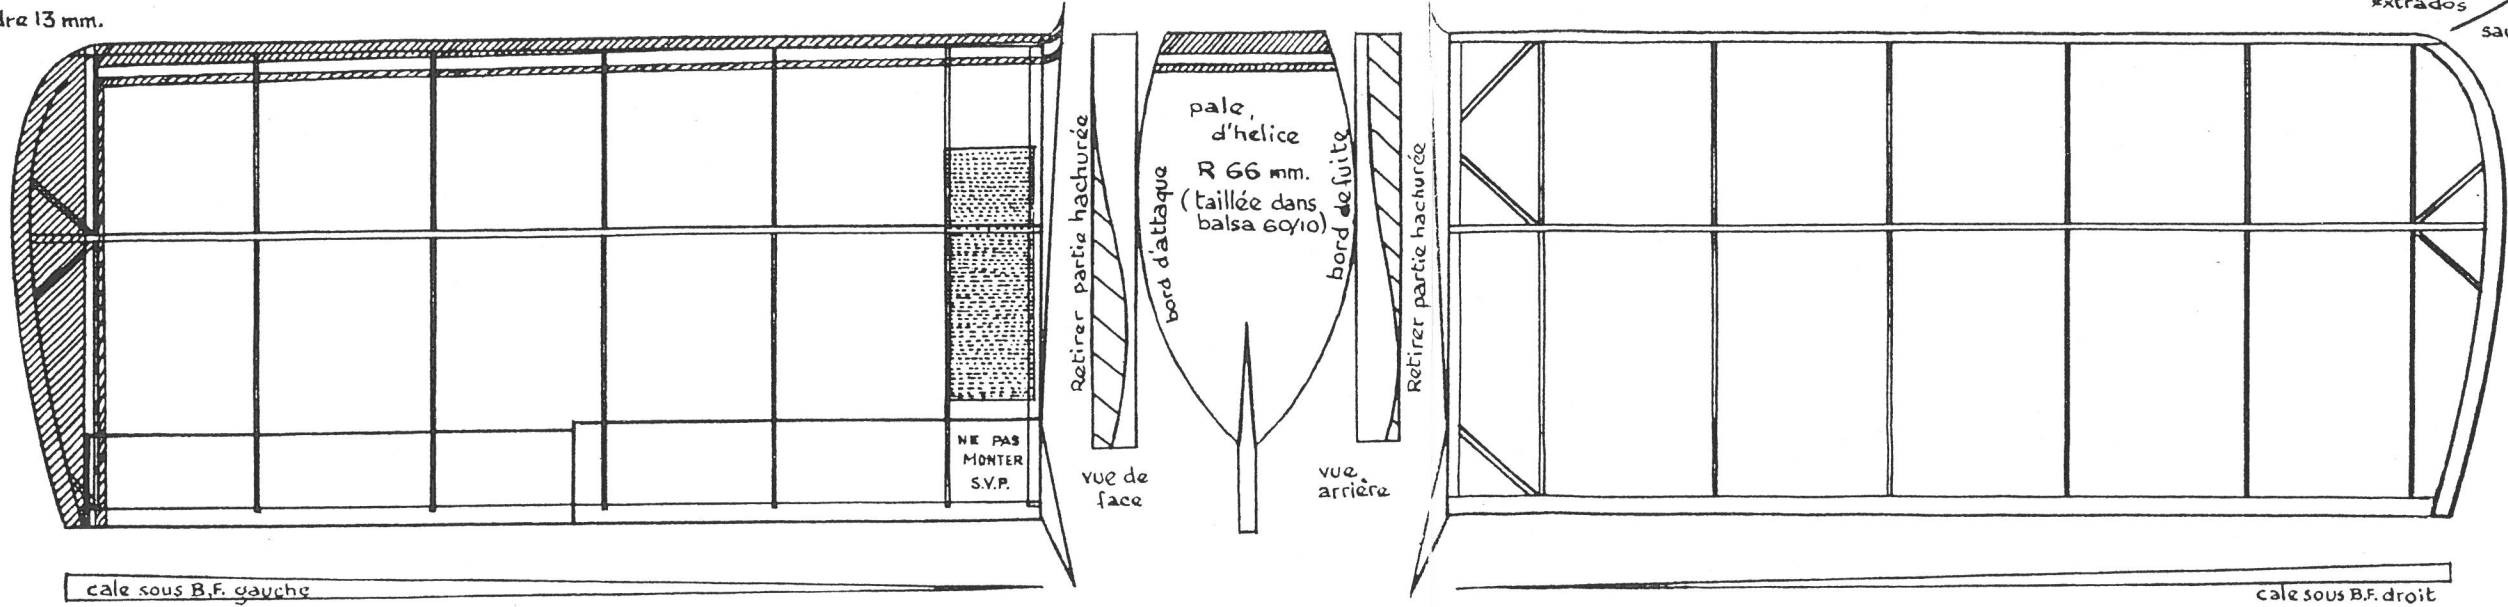 dre 13 mm.
extrados
Retirer partie hachurée
bord d'attaque
pale
d'hélice
R 66 mm.
(taillée dans
balsa 60/10)
bord de fuite
Retirer partie hachurée
NE PAS
MONTER
S.V.P.
vue de
face
vue
arrière
cale sous B.F. gauche
cale sous B.F. droit